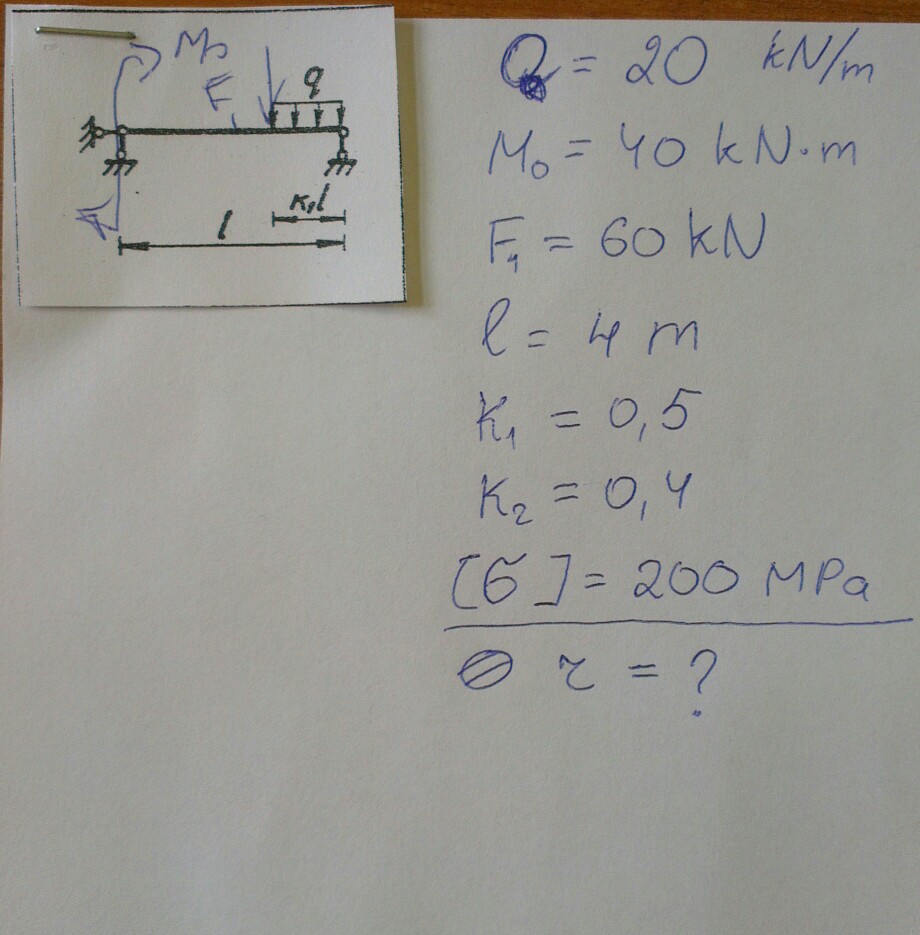 M₀
F
q
K₁l
l
Q = 20 kN/m
M₀ = 40 kN·m
F₁ = 60 kN
l = 4 m
K₁ = 0,5
K₂ = 0,4
[σ] = 200 MPa
r = ?